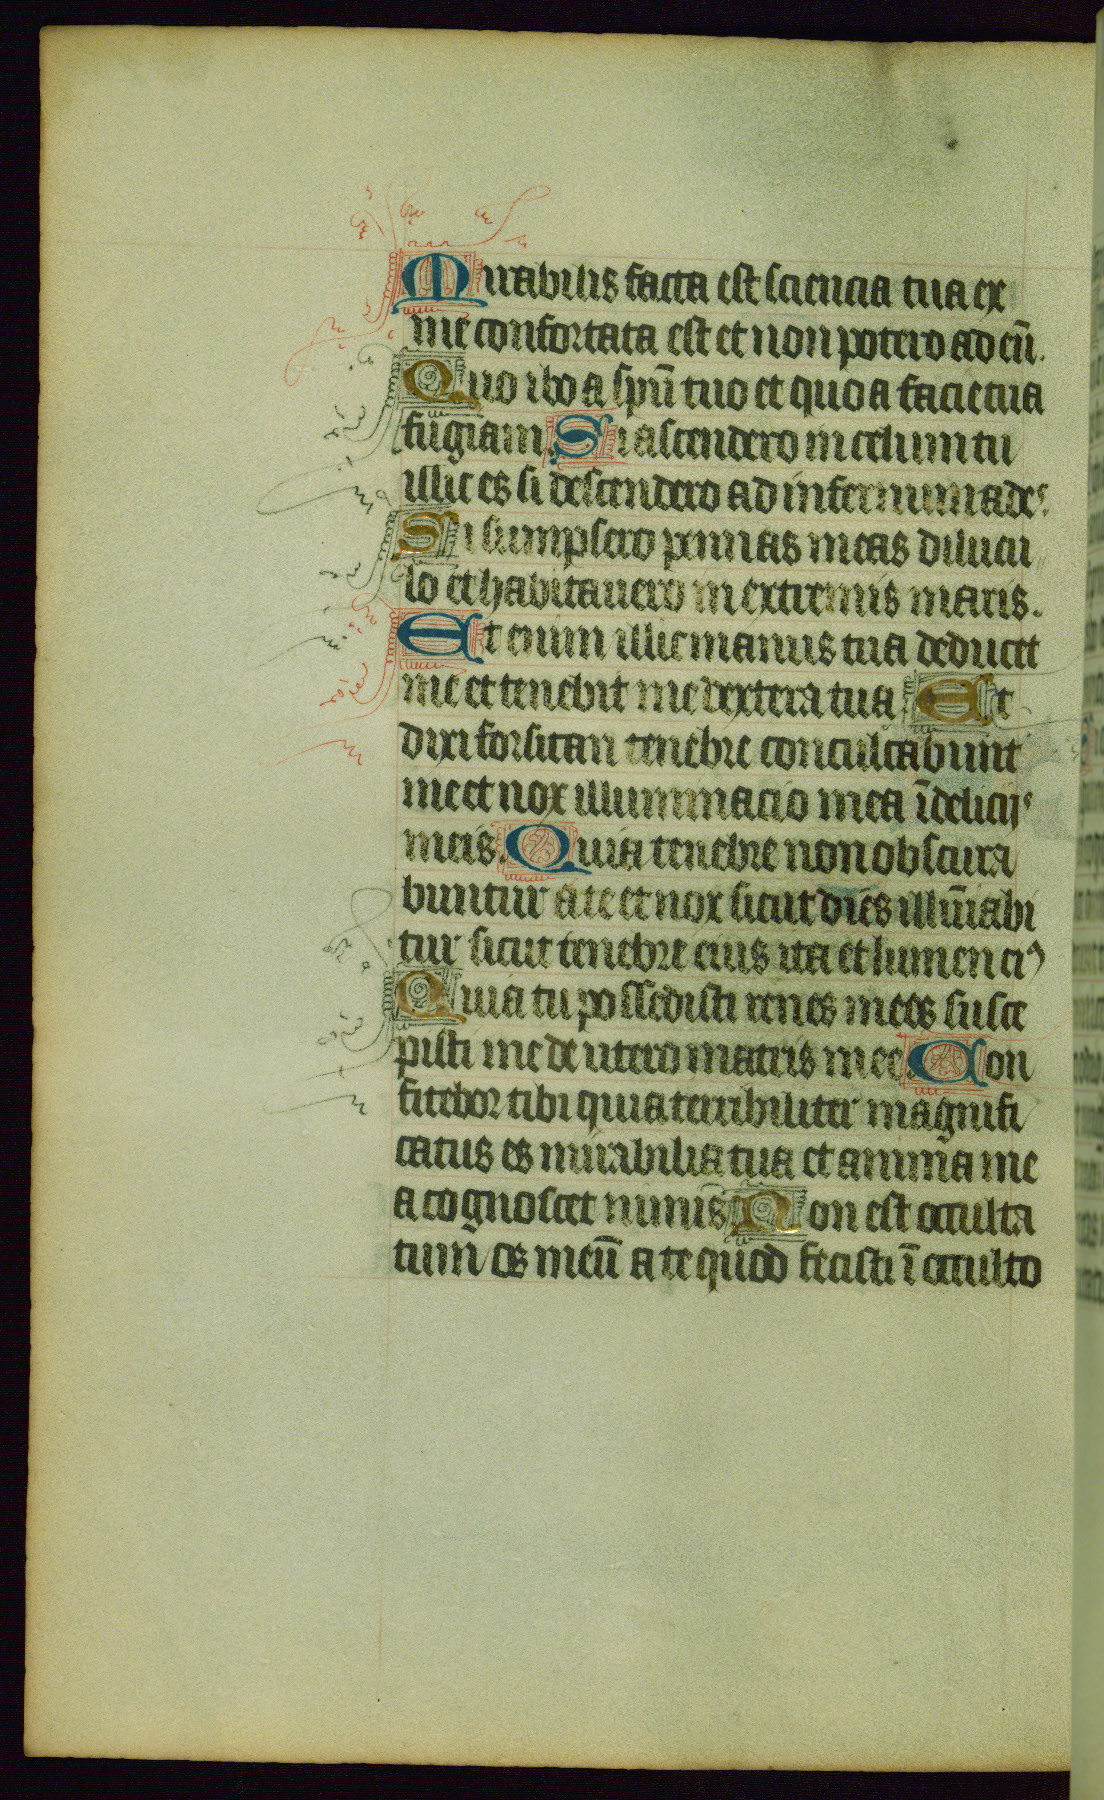 Mirabilis facta est sciencia tua ex
me confortata est et non potero ad eū.
Quo ibo a spū tuo et quo a facie tua
fugiam. Si ascendero in celum tu
illic es si descendero ad infernum ades
Si sumpsero pennas meas dilucu
lo et habitauero in extremis maris.
Et enim illic manus tua deducet
me et tenebit me dextera tua Et
dixi forsitan tenebre conculcabunt
me et nox illuminacio mea ī delicijs
meis. Quia tenebre non obscura
buntur a te et nox sicut dies illūiabi
tur sicut tenebre eius ita et lumen ei⁹
Quia tu possedisti renes meos susce
pisti me de utero matris mee. Con
fitebor tibi quia terribiliter magnifi
catus es mirabilia tua et anima me
a cognoscet nimis Non est occulta
tum os meū a te quod fecisti ī occulto